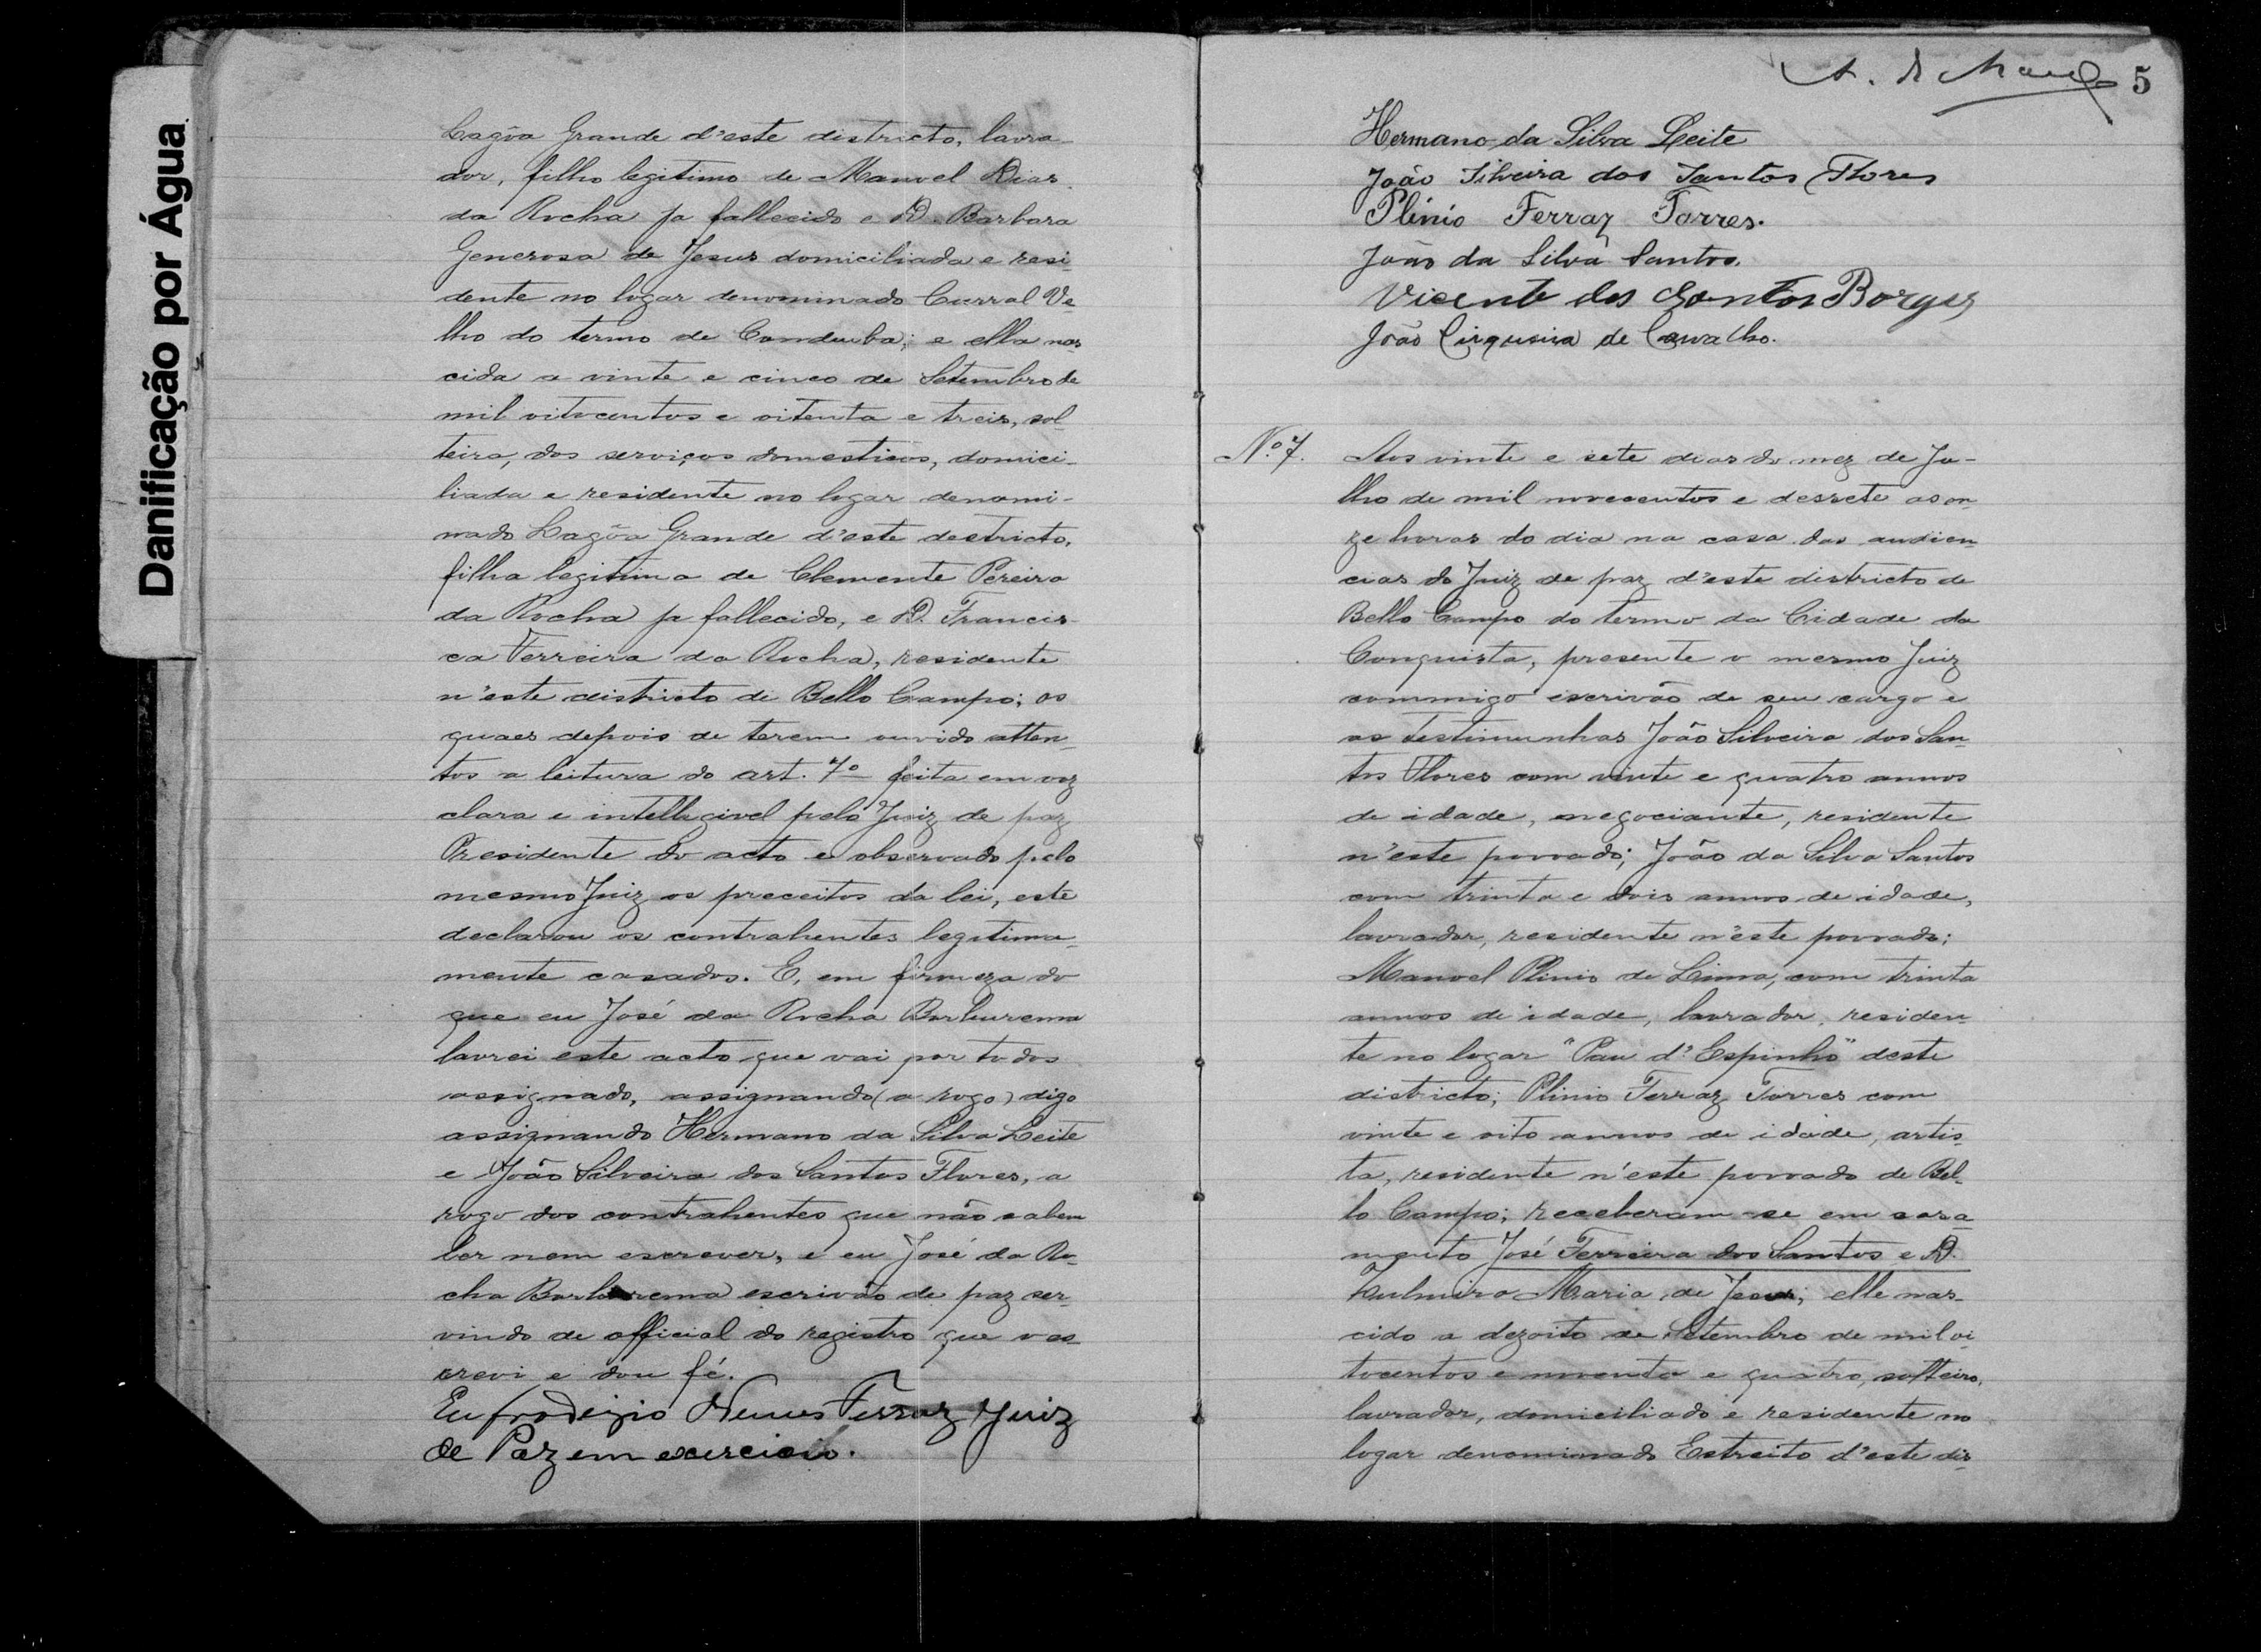 Danificação por Água
Lagôa Grande d'este districto, lavra-
dor, filho legitimo de Manoel Dias
da Rocha ja fallecido e D. Barbara
Generosa de Jesus domiciliada e resi-
dente no logar denominado Curral Ve-
lho do termo de Condeuba; e ella nas
cida a vinte e cinco de Setembro de
mil oitocentos e oitenta e treis, sol-
teira, dos serviços domesticos, domici-
liada e residente no logar denomi-
nado Lagôa Grande d'este destricto,
filha legitima de Clemente Pereira
da Rocha ja fallecido, e D. Francis-
ca Ferreira da Rocha, residente
n'este districto de Bello Campo; os
quaes depois de terem ouvido atten-
tos a leitura do art. 7º feita em voz
clara e intellegivel pelo Juiz de paz
Presidente do acto e observado pelo
mesmo Juiz os preceitos da lei, este
declarou os contrahentes legitima-
mente casados. E, em firmeza do
que eu José da Rocha Barburema
lavrei este acto que vai por todos
assignado, assignando (a rogo) digo
assignando Hermano da Silva Leite
e João Silveira dos Santos Flores, a
rogo dos contrahentes que não sabem
ler nem escrever, e eu José da Ro-
cha Barburema escrivão de paz ser-
vindo de official do registro que o es-
crevi e dou fé.
Eufrodizio Nunes Ferraz Juiz
de Paz em exercicio.
5
Hermano da Silva Leite
João Silveira dos Santos Flores
Plínio Ferraz Torres.
João da Silva Santos.
Vicente dos Santos Borges
João Cirqueira de Carvalho.
Nº 7. Aos vinte e sete dias do mez de Ju-
lho de mil novecentos e dessete as on
ze horas do dia na casa das audien
cias do Juiz de paz d'este districto de
Bello Campo do termo da Cidade da
Conquista, presente o mesmo Juiz
commigo escrivão de seu cargo e
as testimunhas João Silveira dos San
tos Flores com vinte e quatro annos
de idade, negociante, residente
n'este povoado; João da Silva Santos
com trinta e dois annos de idade,
lavrador, residente n'este povoado;
Manoel Plinio de Lima, com trinta
annos de idade, lavrador, residen-
te no logar "Pau d'Espinho" deste
districto; Plinio Ferraz Torres com
vinte e oito annos de idade, artis-
ta, residente n'este povoado de Bel-
lo Campo; receberam-se em casa
mento José Ferreira dos Santos e D.
Maria de Jesus; elle nas-
cido a dezoito de Setembro de mil oi
tocentos e noventa e quatro, solteiro,
lavrador, domiciliado e residente no
logar denominado Estreito d'este dis-